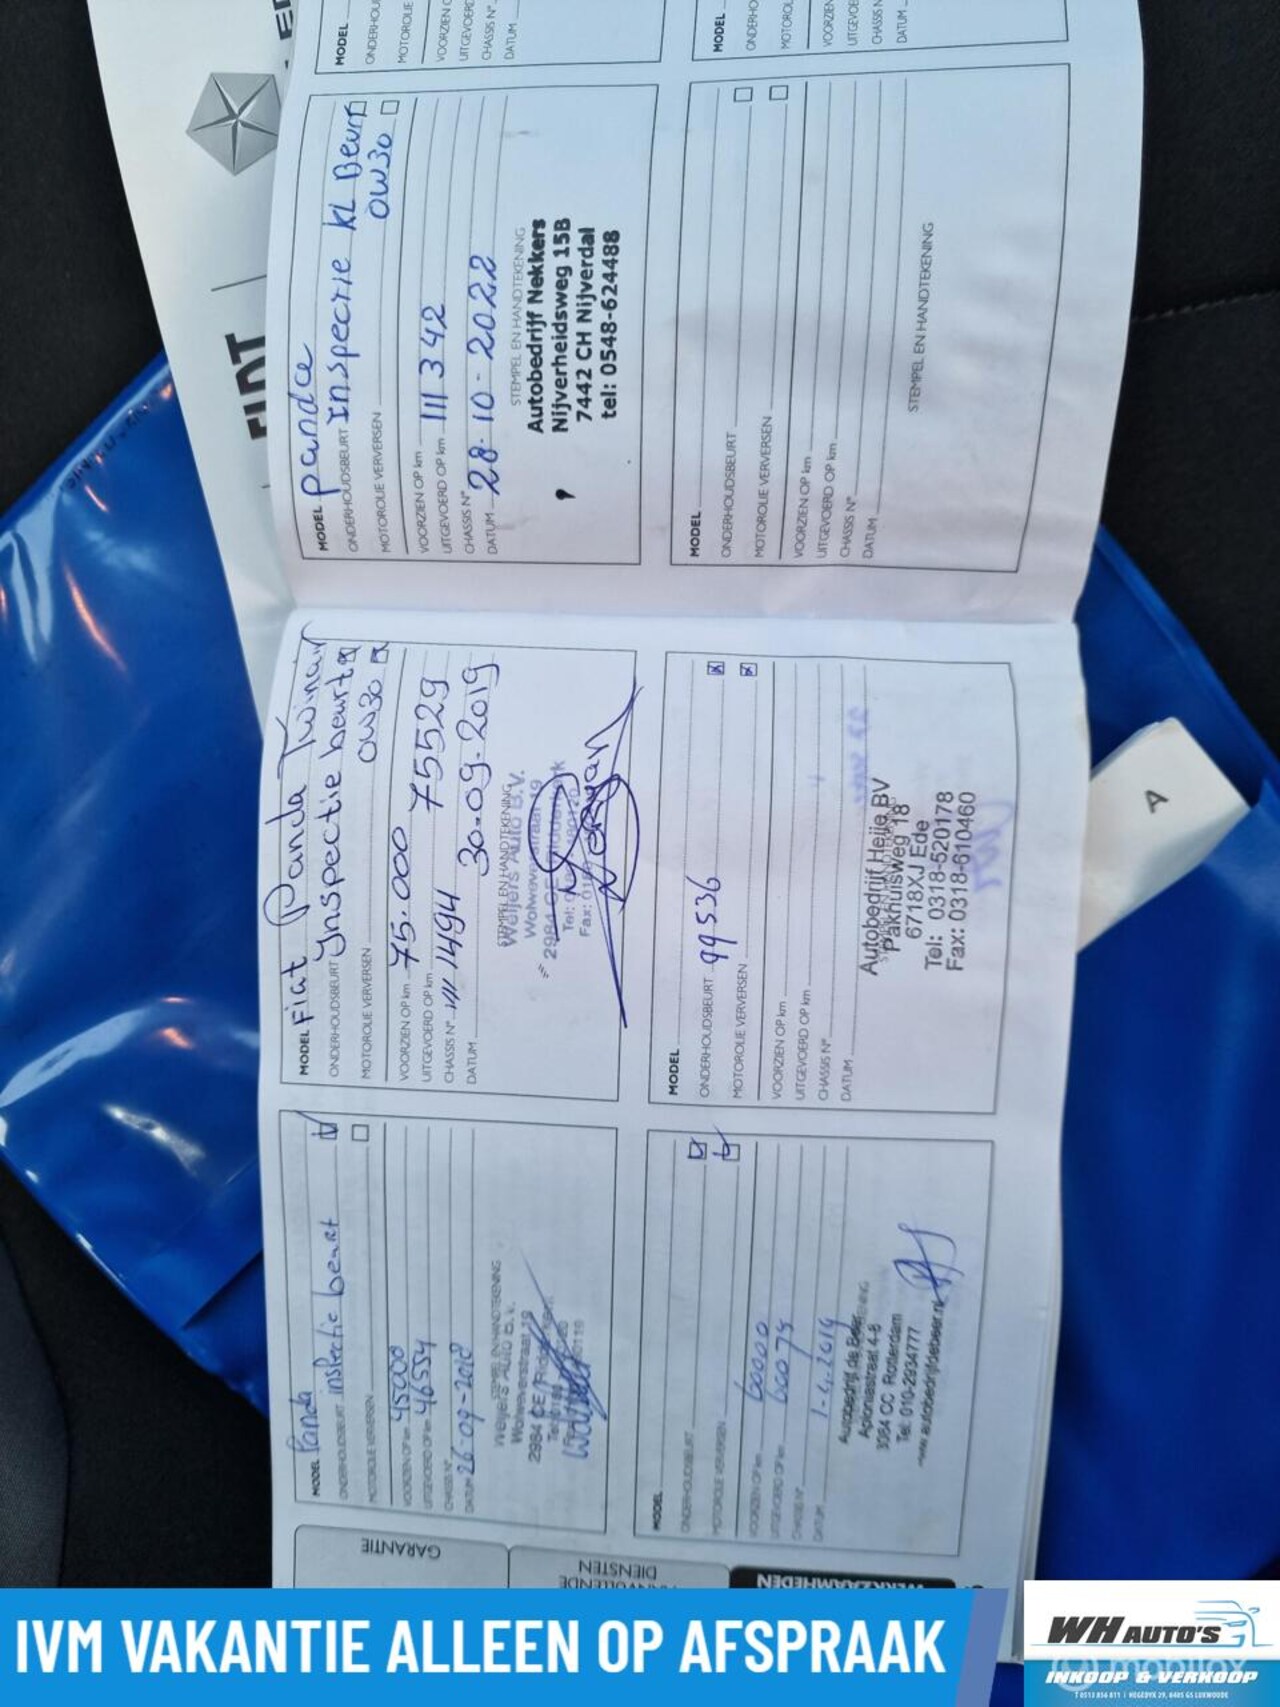 MODEL Panda
ONDERHOUDSBEURT inspectie beurt
MOTOROLIE VERVERSEN
VOORZIEN OP km 45000
UITGEVOERD OP km 46554
CHASSIS N°
DATUM 26-09-2018
STEMPEL EN HANDTEKENING
Weijers Auto B.V.
MODEL
ONDERHOUDSBEURT
MOTOROLIE VERVERSEN
VOORZIEN OP km 60000
UITGEVOERD OP km 60075
CHASSIS N°
DATUM 1-4-2019
Autobedrijf de Beer
Aploniastraat 4-8
3084 CC Rotterdam
Tel: 010-2934777
www.autobedrijfdebeer.nl
MODEL Fiat Panda Twinair
ONDERHOUDSBEURT Inspectie beurt
MOTOROLIE VERVERSEN 0W30
VOORZIEN OP km 75.000
UITGEVOERD OP km 75529
CHASSIS N° 1494
DATUM 30-09-2019
STEMPEL EN HANDTEKENING
Weijers Auto B.V.
MODEL
ONDERHOUDSBEURT 99536
MOTOROLIE VERVERSEN
VOORZIEN OP km
UITGEVOERD OP km
CHASSIS N°
DATUM
Autobedrijf Heije BV
Pakhuisweg 18
6718XJ Ede
Tel: 0318-520178
Fax: 0318-610460
MODEL pandce
ONDERHOUDSBEURT Inspectie KL Beurt
MOTOROLIE VERVERSEN 0W30
VOORZIEN OP km
UITGEVOERD OP km 111 342
CHASSIS N°
DATUM 28-10-2022
STEMPEL EN HANDTEKENING
Autobedrijf Nekkers
Nijverheidsweg 15B
7442 CH Nijverdal
tel: 0548-624488
MODEL
ONDERHOUDSBEURT
MOTOROLIE VERVERSEN
VOORZIEN OP km
UITGEVOERD OP km
CHASSIS N°
DATUM
STEMPEL EN HANDTEKENING
MODEL
MOTOROLIE
CHASSIS N°
DATUM
MODEL
DATUM
GARANTIE
DIENSTEN
WERKZAAMHEDEN
A
IVM VAKANTIE ALLEEN OP AFSPRAAK
WH AUTO'S
INKOOP & VERKOOP
T 0513 856 811 | HEGEDYK 29, 8405 GS LUXWOUDE